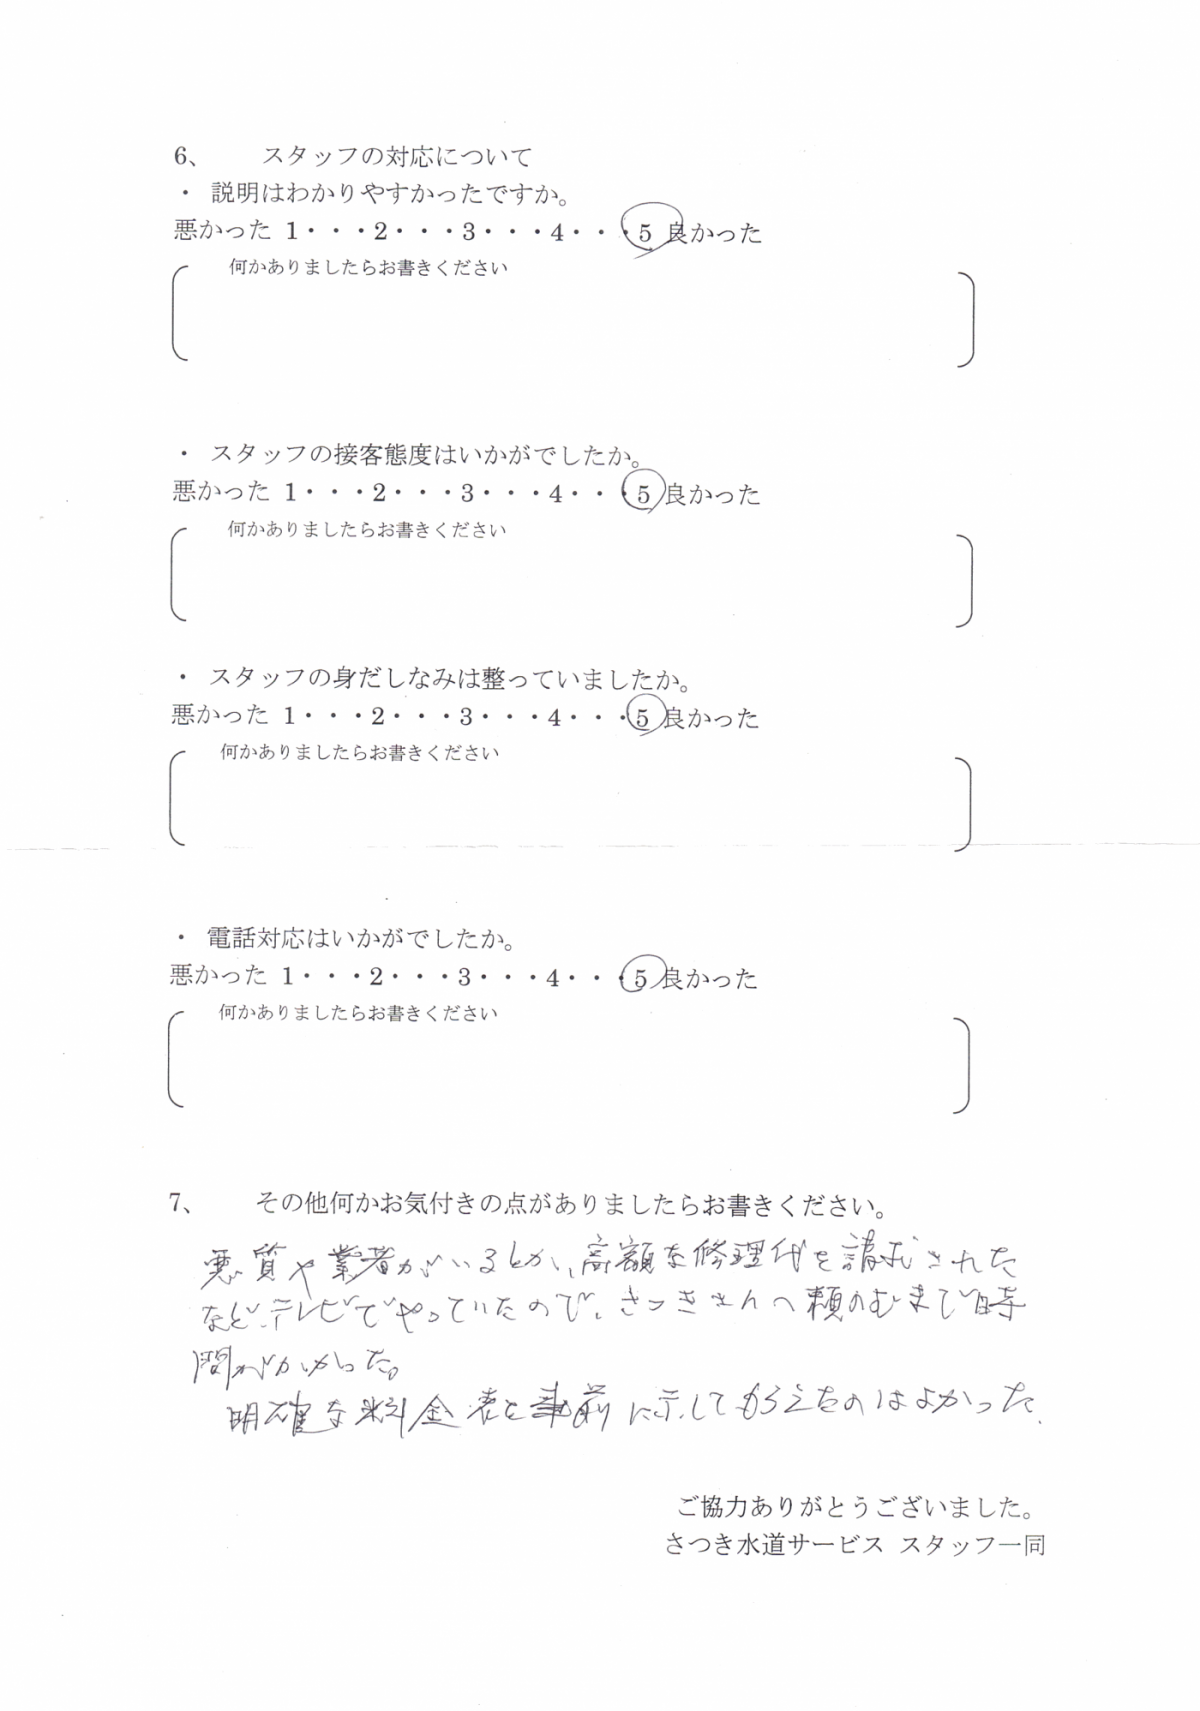 6、　　スタッフの対応について
・ 説明はわかりやすかったですか。
悪かった 1・・・2・・・3・・・4・・・5 良かった
何かありましたらお書きください
・ スタッフの接客態度はいかがでしたか。
悪かった 1・・・2・・・3・・・4・・・5 良かった
何かありましたらお書きください
・ スタッフの身だしなみは整っていましたか。
悪かった 1・・・2・・・3・・・4・・・5 良かった
何かありましたらお書きください
・ 電話対応はいかがでしたか。
悪かった 1・・・2・・・3・・・4・・・5 良かった
何かありましたらお書きください
7、　　その他何かお気付きの点がありましたらお書きください。
悪質や業者がいるとか、高額な修理代を請求された
などテレビでやっていたので、さつきさんへ頼のむまで時
間がかかった。
明確な料金表を事前に示してもらえたのはよかった.
ご協力ありがとうございました。
さつき水道サービス スタッフ一同